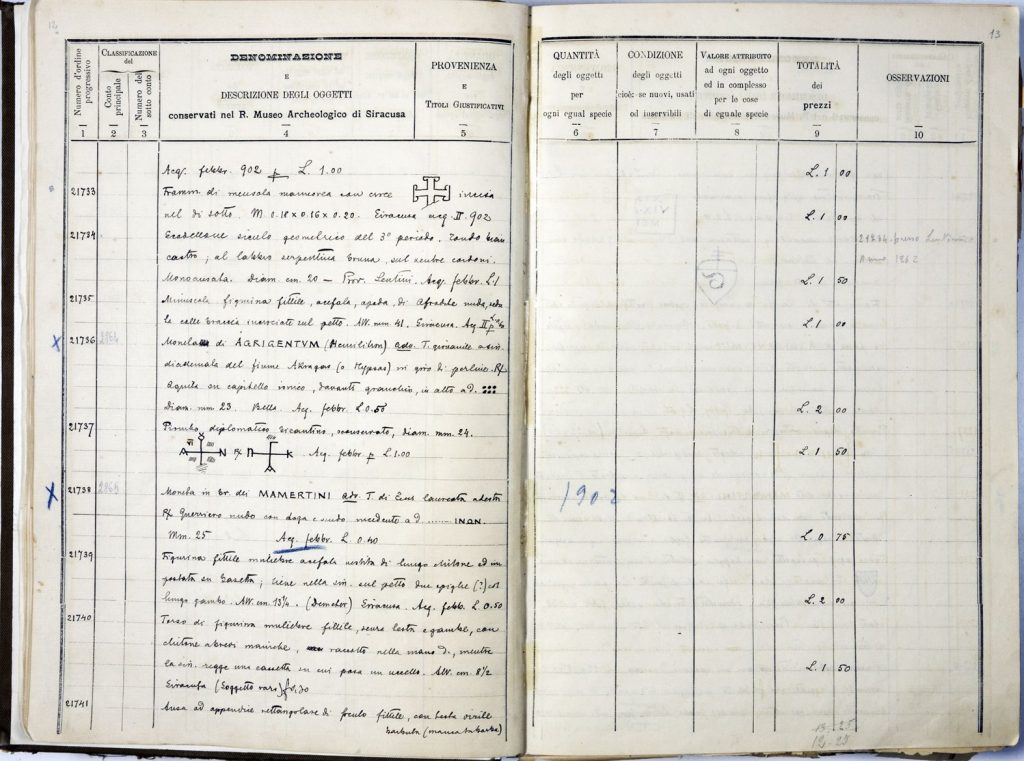 12
Numero d'ordine progressivo
CLASSIFICAZIONE
del
Conto principale
Numero del sotto conto
DENOMINAZIONE
E
DESCRIZIONE DEGLI OGGETTI
conservati nel R. Museo Archeologico di Siracusa
PROVENIENZA
E
TITOLI GIUSTIFICATIVI
1 2 3 4 5
Acq. febbr. 902 p L. 1.00
21733 Framm. di mensola marmorea con croce incisa
nel di sotto. M. 0.18 x 0.16 x 0.20. Siracusa acq. II. 902
21734 siculo geometrico del 3° periodo. Tondo
castro; al labbro serpentina bruna, sul ventre cordoni.
Monoansata. Diam. cm. 20 — Prov. Lentini. Acq. febbr. L. 1
21735 Minuscola figurina fittile, acefala, apoda, di Afrodite nuda,
le braccia incrociate sul petto. Alt. mm. 41. Siracusa. Acq. II p
21736 2964 Moneta di AGRIGENTVM (Hemilitron) adv. T. giovanile a sin.
diademata del fiume Akragas (o Hypsas) in giro di perline. Rx
Aquila su capitello ionico, davanti granchio, in alto ad.
Diam. mm 23. Bella. Acq. febbr. L 0.50
21737 Piombo diplomatico bizantino, sconservato, diam. mm. 24.
Rx Acq. febbr. p L. 1.00
21738 2965 Moneta in br. dei MAMERTINI adv. T. di Zeus laureata a destra
Rx Guerriero nudo con daga e scudo incedente a d. ..... INΩN.
Mm. 25 Acq. febbr. L. 0.40
21739 Figurina fittile muliebre acefala vestita di lungo chitone ed im
postata su basetta; tiene nella sin. sul petto due spighe (?) dal
lungo gambo. Alt. cm. 13¼. (Demeter) Siracusa. Acq. febb. L 0.50
21740 Torso di figurina muliebre fittile, senza testa e gambe, con
chitone a brevi maniche, raccolto nella mano d., mentre
la sin. regge una cassetta su cui posa un uccello. Alt. cm. 8½
Siracusa (Soggetto raro)
21741 Ansa ad appendice rettangolare di focolo fittile, con testa virile
barbuta (manca la barba)
13
QUANTITÀ
degli oggetti
per
ogni egual specie
CONDIZIONE
degli oggetti
cioè: se nuovi, usati
od inservibili
VALORE ATTRIBUITO
ad ogni oggetto
ed in complesso
per le cose
di eguale specie
TOTALITÀ
dei
prezzi
OSSERVAZIONI
6 7 8 9 10
L. 1 00
L. 1 00
21734
L. 1 50
L. 1 00
L. 2 00
L. 1 50
1902
L. 0 75
L. 2 00
L. 1 50
13-25
12-25